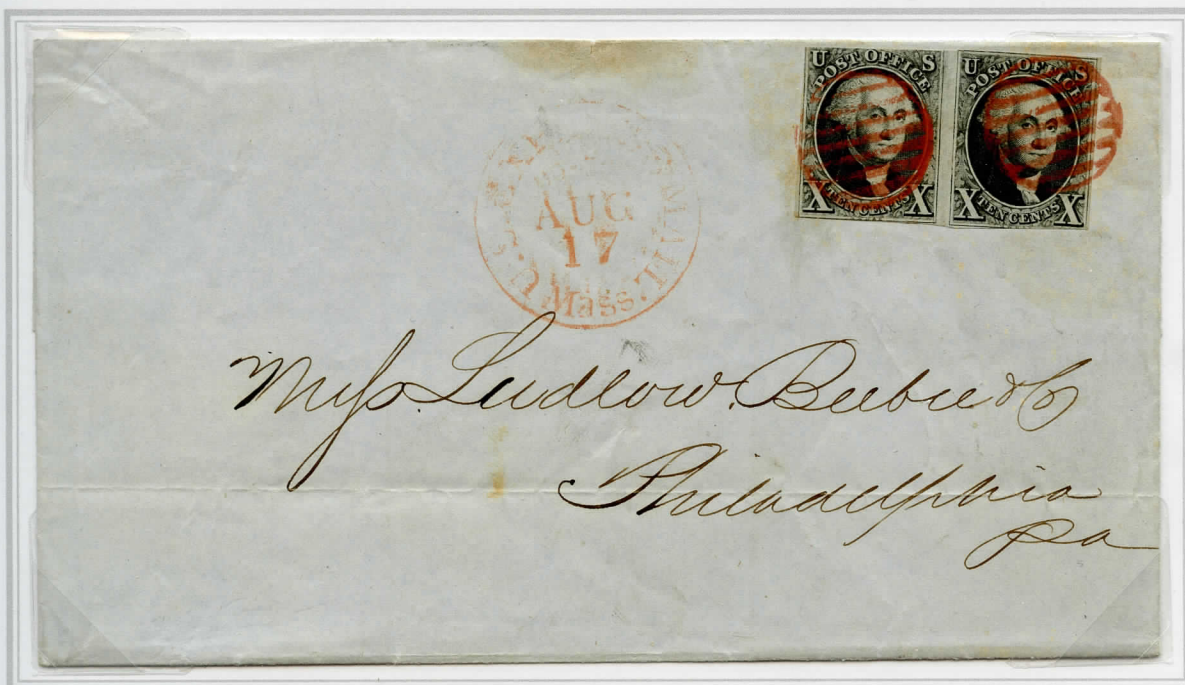 U S
POST OFFICE
X TEN CENTS X
U S
POST OFFICE
X TEN CENTS X
U.S. EXPRESS MAIL
AUG
17
Mass.
Mess. Ludlow. Beebee & Co
Philadelphia
Pa